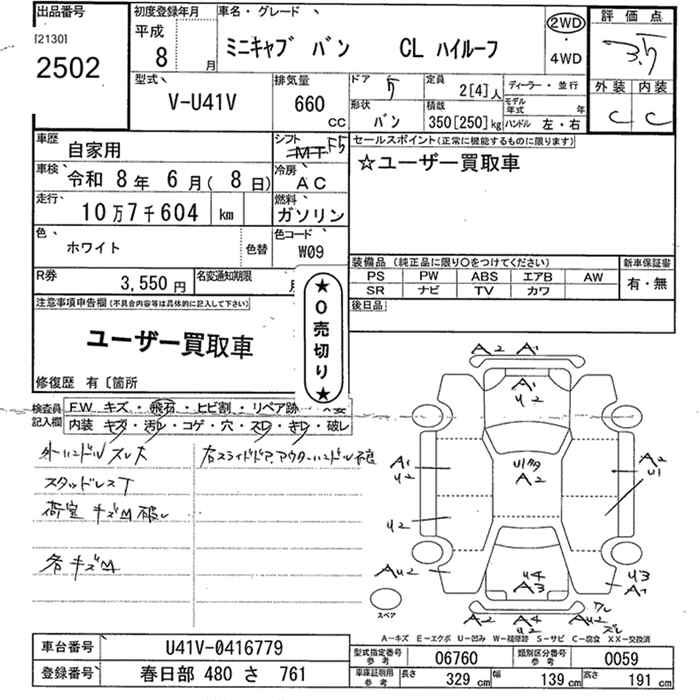 出品番号
[2130]
2502
初度登録年月
平成
8 月
車名・グレード
ミニキャブ バン CL ハイルーフ
2WD
・
4WD
評価点
3.5
外装 内装
C C
型式
V-U41V
排気量
660
CC
ドア
5
定員
2[4]人
ディーラー・並行
形状
バン
積載
350[250]kg
モデル年式 年
ハンドル 左・右
車歴
自家用
シフト
MT F5
セールスポイント(正常に機能するものに限ります)
☆ユーザー買取車
車検
令和 8年 6月( 8日)
冷房
AC
走行
10万7千604 km
燃料
ガソリン
色
ホワイト
色替
色コード
W09
装備品 (純正品に限り○をつけてください)
PS PW ABS エアB AW
SR ナビ TV カワ
新車保証書
有・無
R券
3,550円
名変通知期限
月
後日品
注意事項申告欄(不具合内容等は具体的に記入して下さい)
ユーザー買取車
★0売切り★
修復歴 有〔箇所
検査員記入欄
FW キズ・飛石・ヒビ割・リペア跡・
内装 キズ・汚レ・コゲ・穴・スレ・キレ・破レ
外ハンドルズレ大
右スライドドアアウターハンドル
スタッドレスT
荷室 キズM破レ
各キズM
A2 A1
A1
U2
A1
U2
A2
A2
U1
U2
AU2
U4
A3
U3
A1
A2 A4 AU2
U2
ワレ
ズレ
スペア
A-キズ E-エクボ U-凹み W-補修跡 S-サビ C-腐食 XX-交換済
車台番号
U41V-0416779
登録番号
春日部 480 さ 761
型式指定番号
参考
06760
類別区分番号
参考
0059
車庫証明用
参考
長さ
329 cm
幅
139 cm
高さ
191 cm